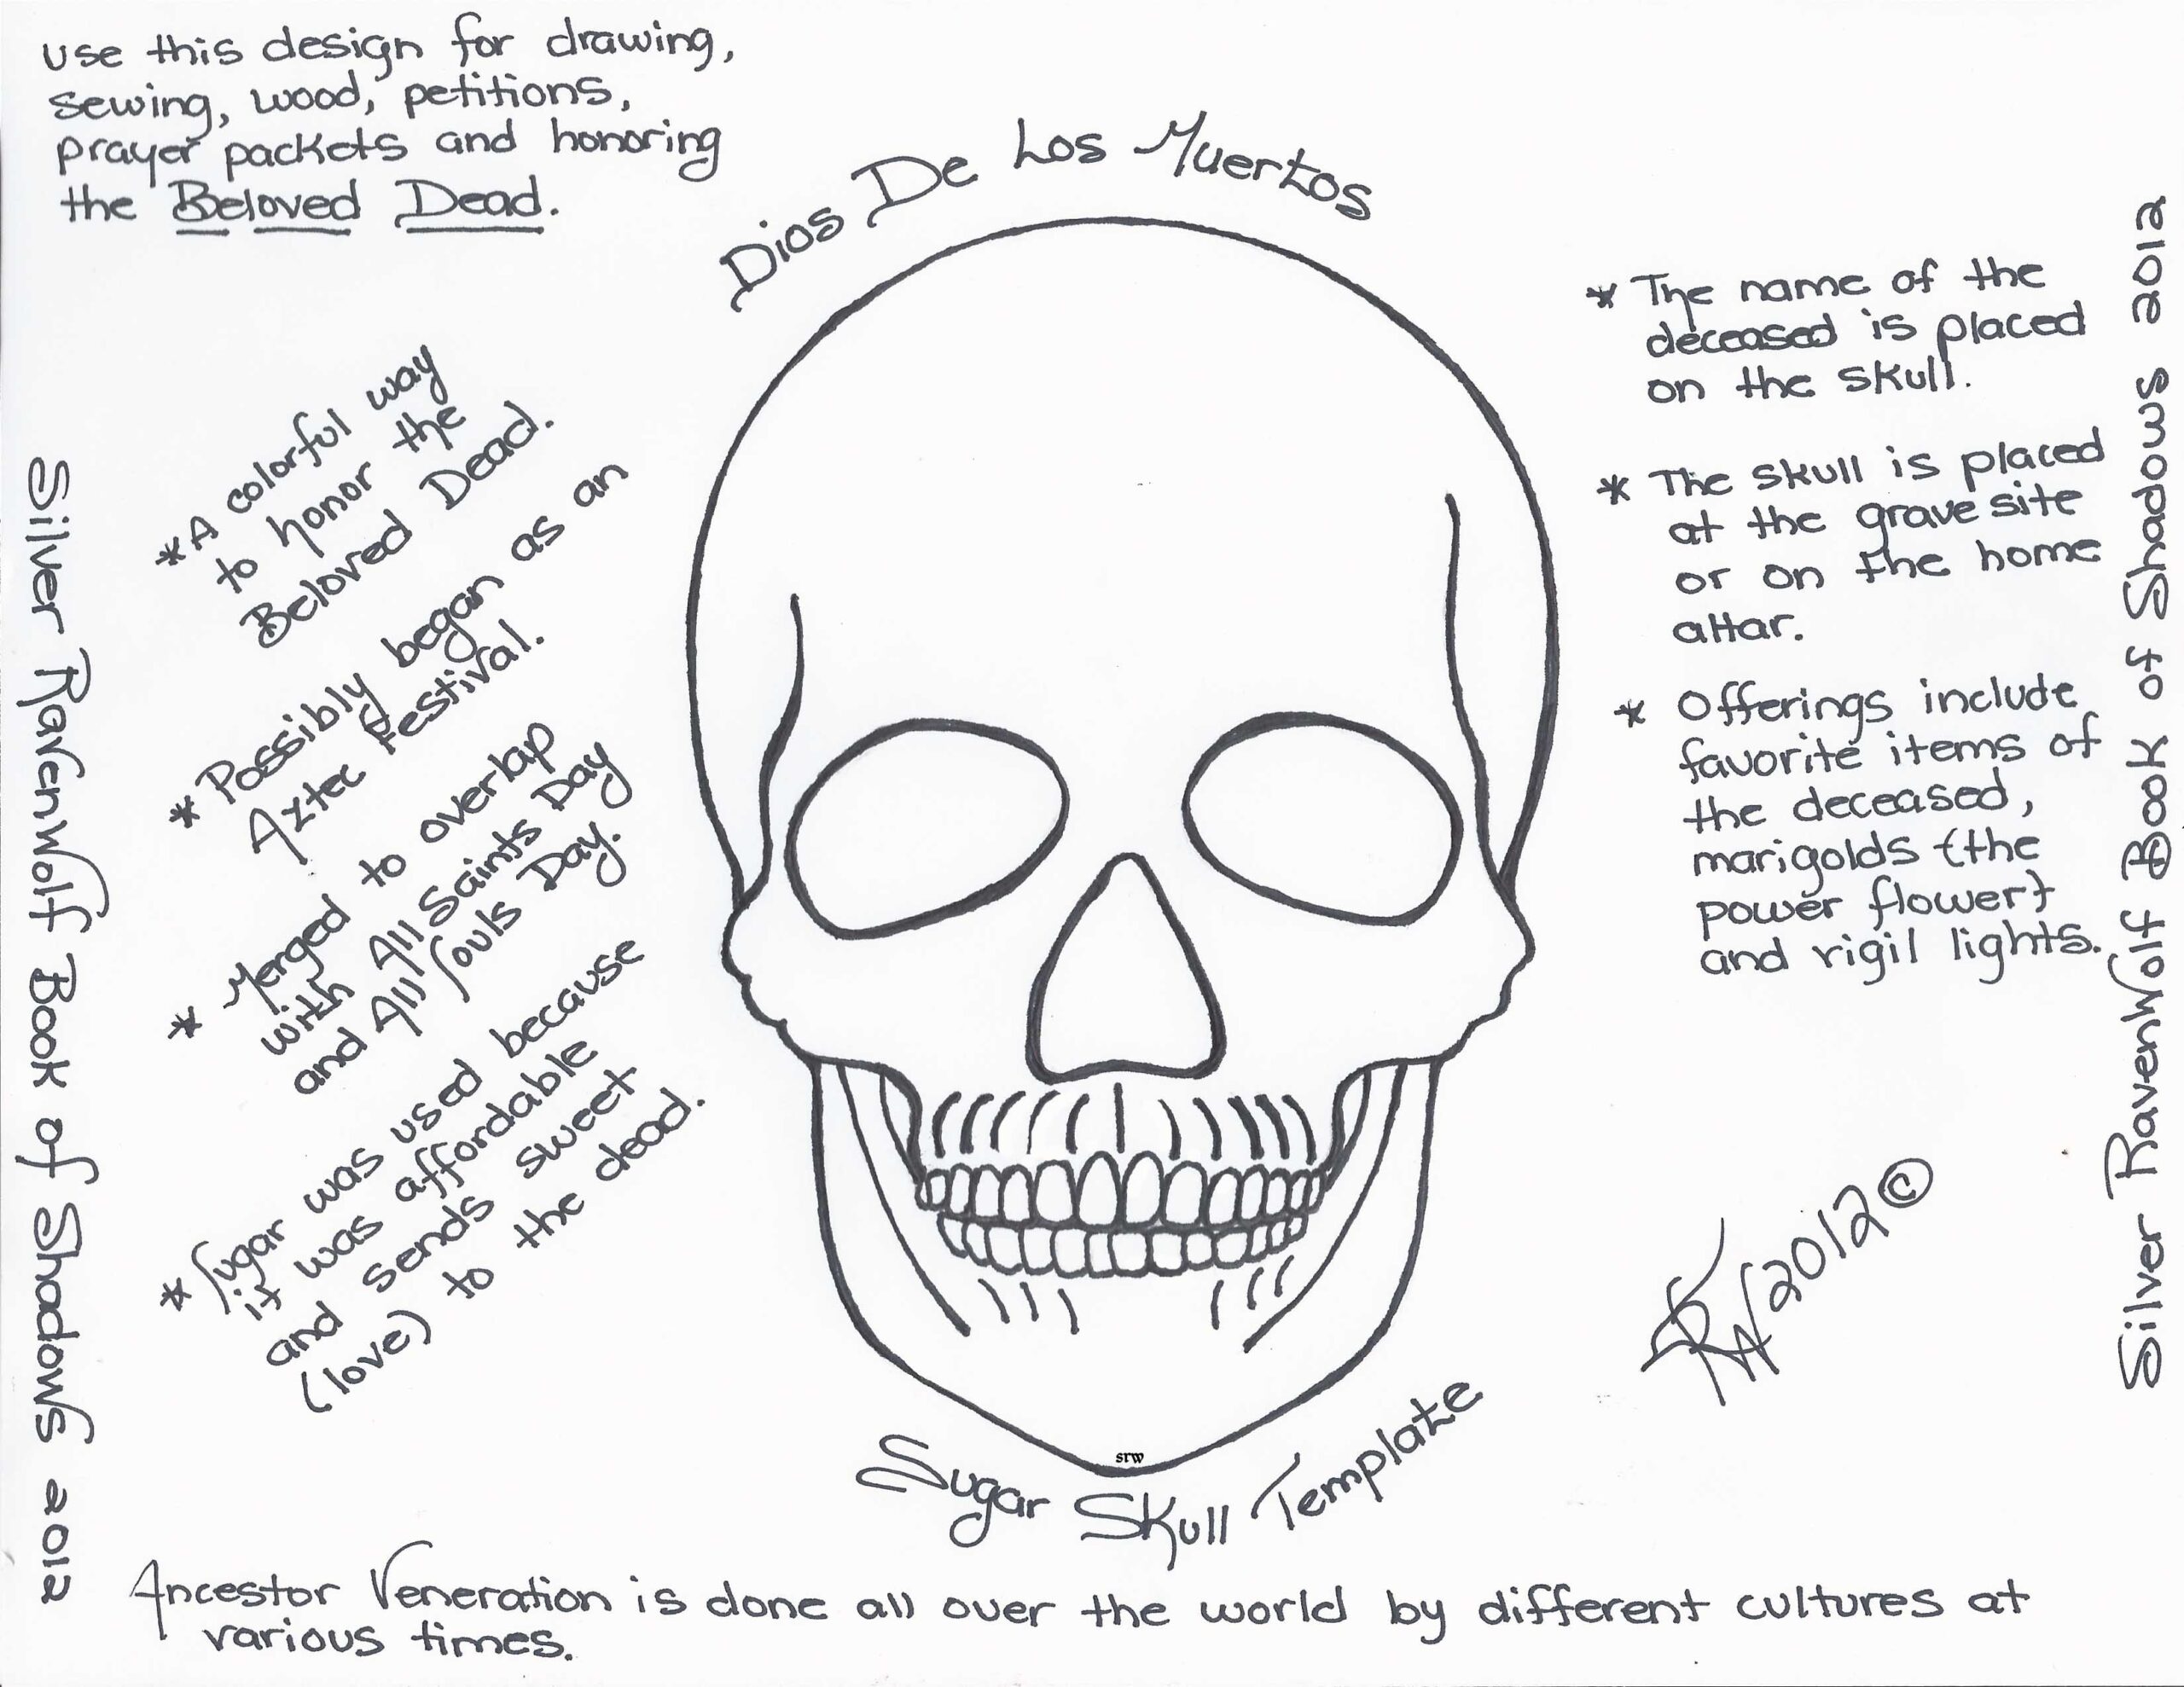 use this design for drawing,
sewing, wood, petitions,
prayer packets and honoring
the Beloved Dead.
Dios De Los Muertos
* A colorful way
to honor the
Beloved Dead.
* Possibly began as an
Aztec Festival.
* Merged to overlap
with All Saints Day
and All Souls Day.
* Sugar was used because
it was affordable
and sends sweet
(love) to the dead.
* The name of the
deceased is placed
on the skull.
* The skull is placed
at the grave site
or on the home
altar.
* Offerings include
favorite items of
the deceased,
marigolds (the
power flower)
and rigil lights.
Silver RavenWolf Book of Shadows 2012
Silver RavenWolf Book of Shadows 2012
SRW 2012 ©
srw
Sugar Skull Template
Ancestor Veneration is done all over the world by different cultures at
various times.